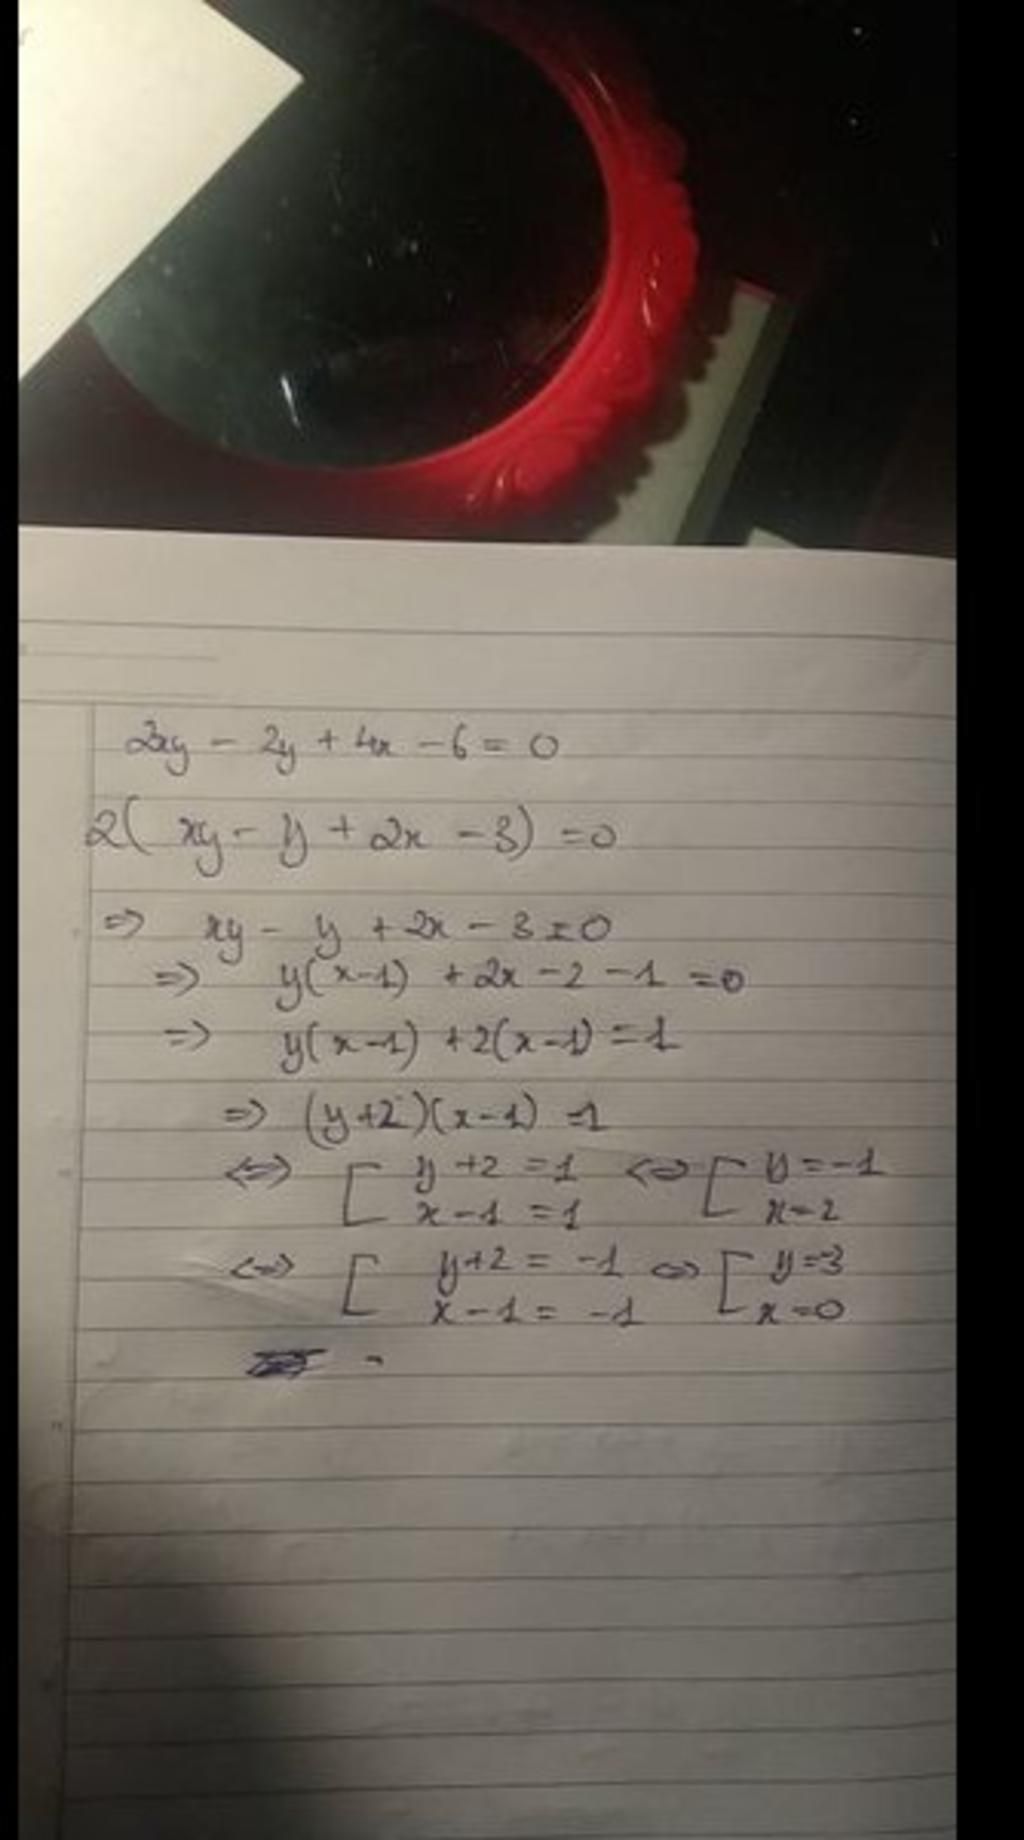 2xy - 2y + 4x - 6 = 0
2( xy - y + 2x - 3) = 0
=> xy - y + 2x - 3 = 0
=> y(x-1) + 2x - 2 - 1 = 0
=> y(x-1) + 2(x-1) = 1
=> (y+2)(x-1) =1
<=> [ y+2 = 1 <=> [ y = -1
x-1 = 1 x=2
<=> [ y+2 = -1 <=> [ y=-3
x-1 = -1 x=0